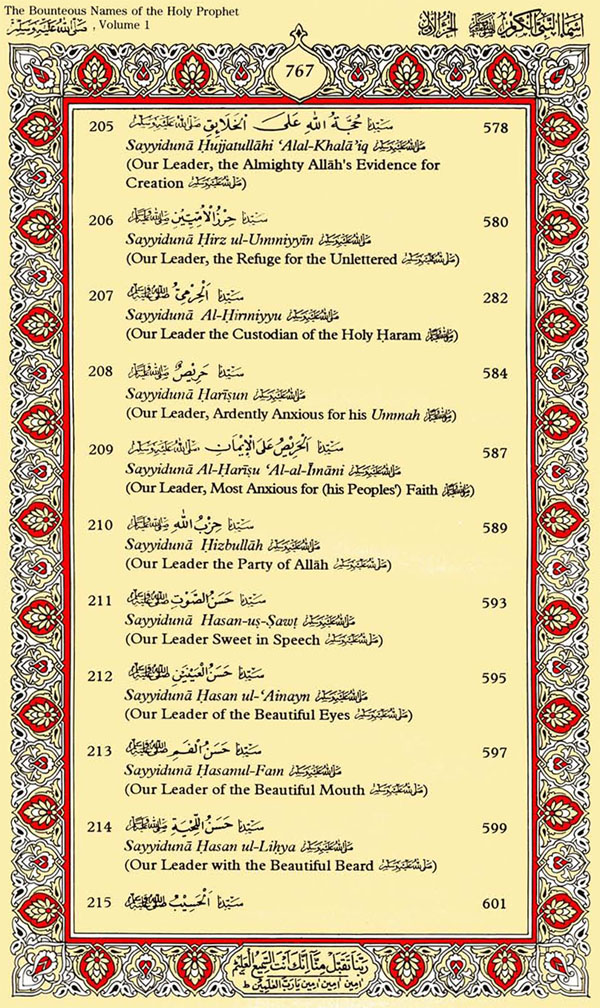 The Bounteous Names of the Holy Prophet
صَلَّى اللهُ عَلَيْهِ وَسَلَّمَ , Volume 1
767
205 سَيِّدُنَا حُجَّةُ اللهِ عَلَى الْخَلَائِقِ صَلَّى اللهُ عَلَيْهِ وَسَلَّمَ 578
Sayyidunā Ḥujjatullāhi ‘Alal-Khalā’iq صَلَّى اللهُ عَلَيْهِ وَسَلَّمَ
(Our Leader, the Almighty Allāh's Evidence for
Creation صَلَّى اللهُ عَلَيْهِ وَسَلَّمَ)
206 سَيِّدُنَا حِرْزُ الْأُمِّيِّيْنَ صَلَّى اللهُ عَلَيْهِ وَسَلَّمَ 580
Sayyidunā Ḥirz ul-Ummiyyīn صَلَّى اللهُ عَلَيْهِ وَسَلَّمَ
(Our Leader, the Refuge for the Unlettered صَلَّى اللهُ عَلَيْهِ وَسَلَّمَ)
207 سَيِّدُنَا الْحِرْمِيُّ صَلَّى اللهُ عَلَيْهِ وَسَلَّمَ 282
Sayyidunā Al-Ḥirmiyyu صَلَّى اللهُ عَلَيْهِ وَسَلَّمَ
(Our Leader the Custodian of the Holy Ḥaram صَلَّى اللهُ عَلَيْهِ وَسَلَّمَ)
208 سَيِّدُنَا حَرِيْصٌ صَلَّى اللهُ عَلَيْهِ وَسَلَّمَ 584
Sayyidunā Ḥarīṣun صَلَّى اللهُ عَلَيْهِ وَسَلَّمَ
(Our Leader, Ardently Anxious for his Ummah صَلَّى اللهُ عَلَيْهِ وَسَلَّمَ)
209 سَيِّدُنَا الْحَرِيْصُ عَلَى الْإِيْمَانِ صَلَّى اللهُ عَلَيْهِ وَسَلَّمَ 587
Sayyidunā Al-Ḥarīṣu ‘Al-al-Īmāni صَلَّى اللهُ عَلَيْهِ وَسَلَّمَ
(Our Leader, Most Anxious for (his Peoples') Faith صَلَّى اللهُ عَلَيْهِ وَسَلَّمَ)
210 سَيِّدُنَا حِزْبُ اللهِ صَلَّى اللهُ عَلَيْهِ وَسَلَّمَ 589
Sayyidunā Ḥizbullāh صَلَّى اللهُ عَلَيْهِ وَسَلَّمَ
(Our Leader the Party of Allāh صَلَّى اللهُ عَلَيْهِ وَسَلَّمَ)
211 سَيِّدُنَا حَسَنُ الصَّوْتِ صَلَّى اللهُ عَلَيْهِ وَسَلَّمَ 593
Sayyidunā Hasan-uṣ-Ṣawṭ صَلَّى اللهُ عَلَيْهِ وَسَلَّمَ
(Our Leader Sweet in Speech صَلَّى اللهُ عَلَيْهِ وَسَلَّمَ)
212 سَيِّدُنَا حَسَنُ الْعَيْنَيْنِ صَلَّى اللهُ عَلَيْهِ وَسَلَّمَ 595
Sayyidunā Ḥasan ul-‘Ainayn صَلَّى اللهُ عَلَيْهِ وَسَلَّمَ
(Our Leader of the Beautiful Eyes صَلَّى اللهُ عَلَيْهِ وَسَلَّمَ)
213 سَيِّدُنَا حَسَنُ الْفَمِ صَلَّى اللهُ عَلَيْهِ وَسَلَّمَ 597
Sayyidunā Ḥasanul-Fam صَلَّى اللهُ عَلَيْهِ وَسَلَّمَ
(Our Leader of the Beautiful Mouth صَلَّى اللهُ عَلَيْهِ وَسَلَّمَ)
214 سَيِّدُنَا حَسَنُ اللِّحْيَةِ صَلَّى اللهُ عَلَيْهِ وَسَلَّمَ 599
Sayyidunā Ḥasan ul-Liḥya صَلَّى اللهُ عَلَيْهِ وَسَلَّمَ
(Our Leader with the Beautiful Beard صَلَّى اللهُ عَلَيْهِ وَسَلَّمَ)
215 سَيِّدُنَا الْحَسِيْبُ صَلَّى اللهُ عَلَيْهِ وَسَلَّمَ 601
رَبَّنَا تَقَبَّلْ مِنَّا إِنَّكَ أَنْتَ السَّمِيعُ الْعَلِيمُ
اٰمِيْن اٰمِيْن اٰمِيْن يَارَبَّ الْعٰلَمِيْنَ ط